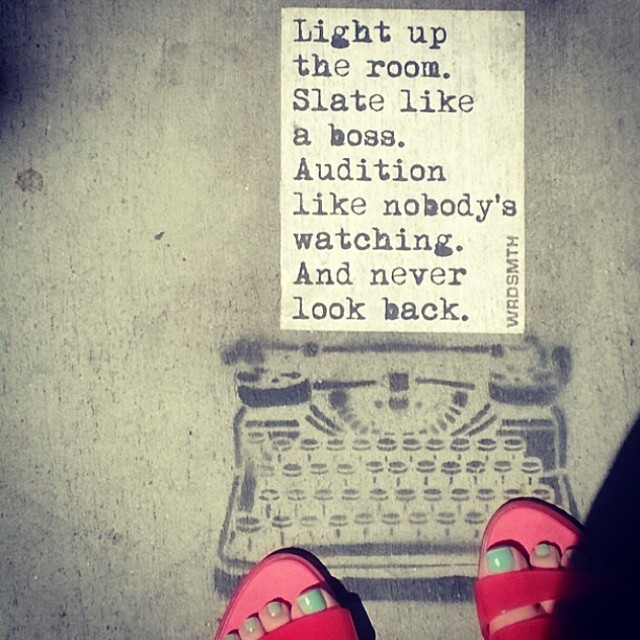 Light up
the room.
Slate like
a boss.
Audition
like nobody's
watching.
And never
look back.
WRDSMTH